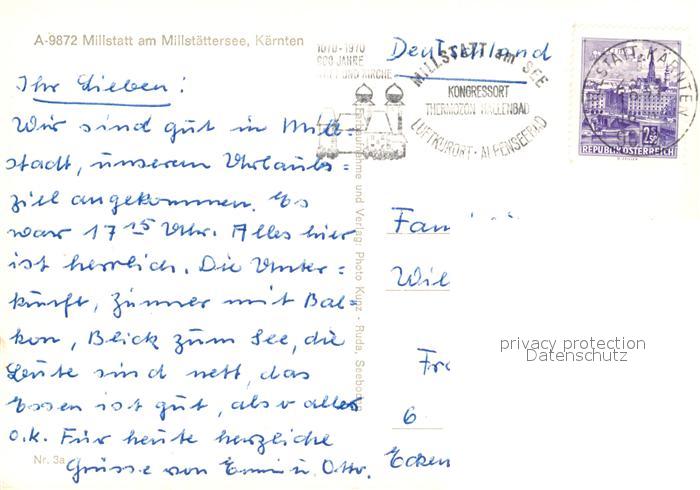 A-9872 Millstatt am Millstättersee, Kärnten
1070-1970
900 JAHRE
STIFT UND KIRCHE
MILLSTATT am SEE
KONGRESSORT
THERMOZON HALLENBAD
LUFTKURORT - ALPENSEEBAD
MILLSTATT, KÄRNTEN
2.50
REPUBLIK ÖSTERREICH
Deutschland
Ihr Lieben!
Wir sind gut in Mill=
stadt, unserem Urlaubs=
ziel angekommen. Es
war 17 15 Uhr. Alles hier
ist herrlich. Die Unter=
kunft, Zimmer mit Bal=
kon, Blick zum See, die
Leute sind nett, das
Essen ist gut, also alles
o.k. Für heute herzliche
Grüsse von Emmi u. Otto.
Nr. 3a
Aufnahme und Verlag: Photo Kunz - Ruda, Seeboden
Fam
Wil
Fr
6
Ecken
privacy protection
Datenschutz